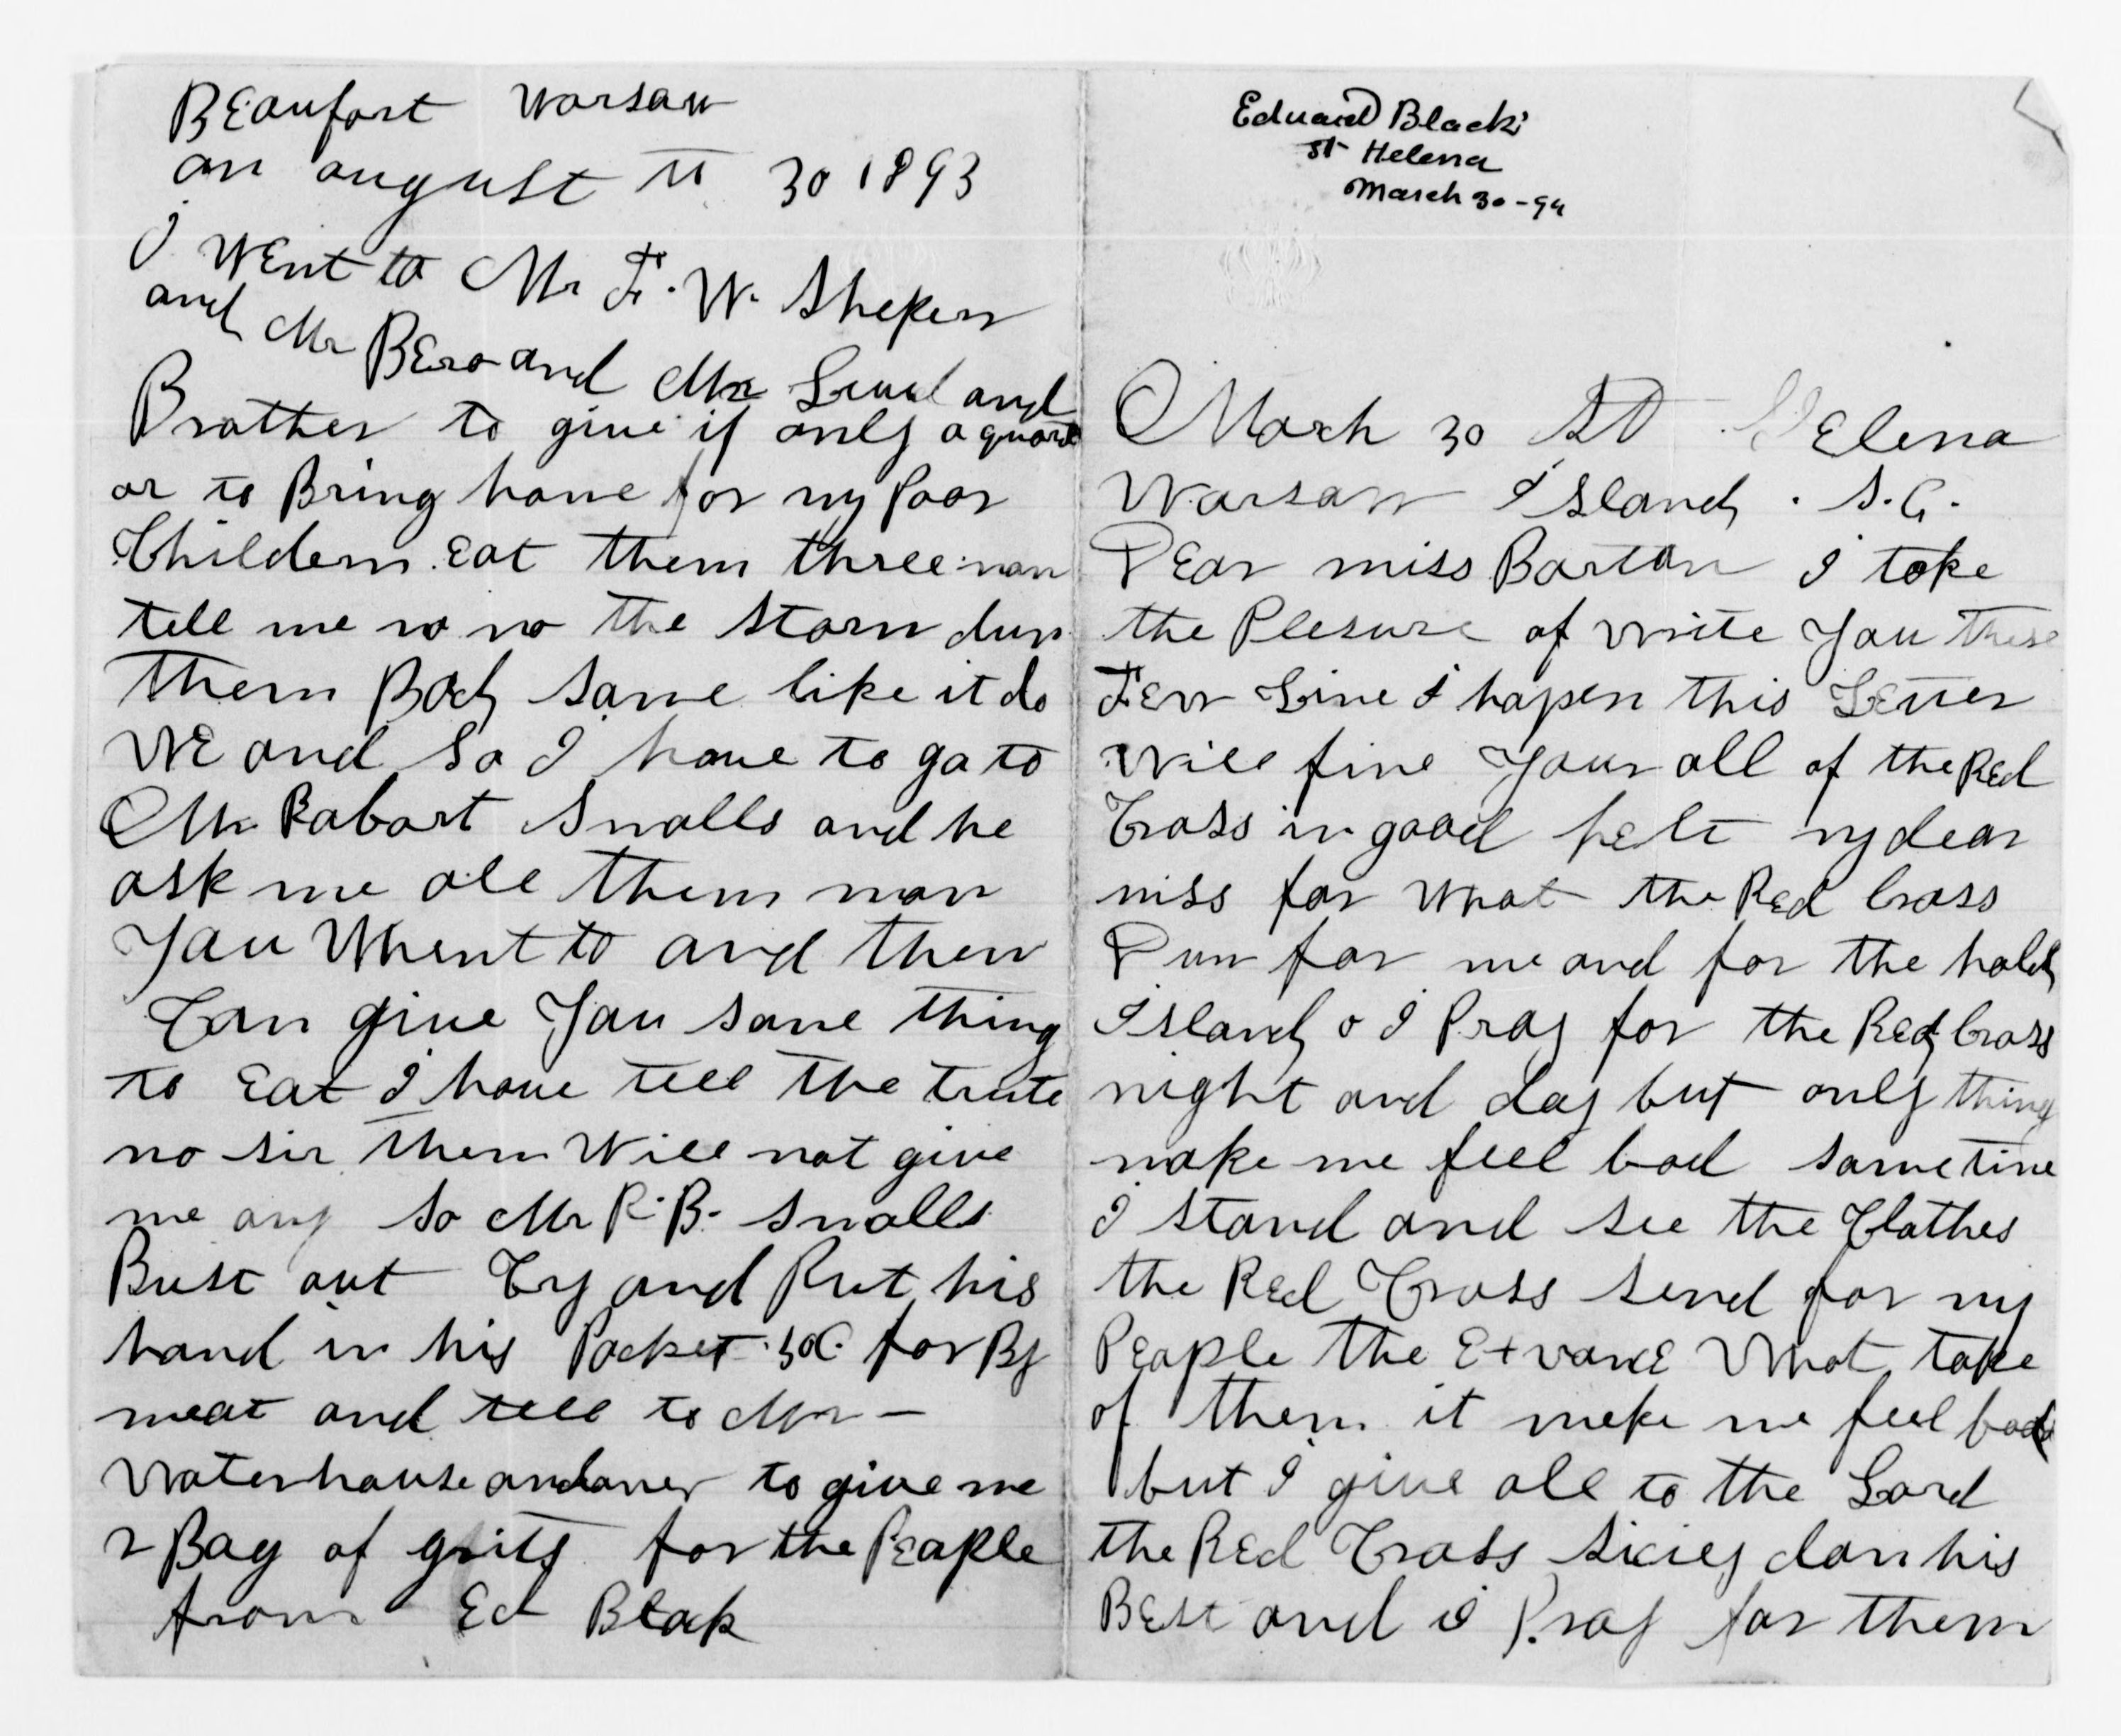 Beaufort Warsaw
on august 30 1893
I Went to Mr F. W. Sheper
and Mr Bero and Mr and
Brother to give if only a quart
or to Bring home for my Poor
Childern Eat them three man
tell me no no the storm dun
them Bad same like it do
WE and So I have to go to
Mr Robort Smalls and he
ask me all them man
You Whent to and them
Can give You some thing
to Eat I have tell the trute
no sir them Will not give
me any so Mr R. B. Smalls
Bust out Cry and Put his
hand in his Pocket 50C for By
meat and tell to Mr —
Waterhouse to give me
2 Bag of grits for the People
from Ed Blak
Eduard Black
St Helena
March 30-94
March 30 St Helena
Warsaw Island. S.C.
Dear miss Barton I take
the Plesure of write You these
Few Line I hapen this Letter
Will fine Your all of the Red
Cross in good helt my dear
miss for What the Red Cross
Dun for me and for the hold
Island o I Pray for the Red Cross
night and day but only thing
make me feel bad sometime
I stand and see the Clothes
the Red Cross send for my
People the What take
of them it make me feel bad
but I give all to the Lord
the Red Cross don his
Best and I Pray for them